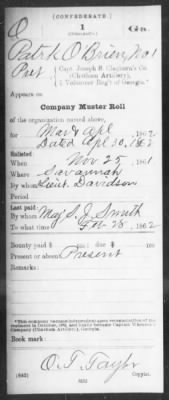 (CONFEDERATE.)
1 Ga.
Patrk O'Brien, No 1
Pvt, Capt. Joseph S. Claghorn's Co.
(Chatham Artillery),
1 Volunteer Reg't of Georgia.*
Appears on
Company Muster Roll
of the organization named above,
for Mar & Apl, 1862
Dated Apl 30, 1862
Enlisted:
When Nov 25, 1861
Where Savannah
By whom Lieut. Davidson
Period
Last paid:
By whom Maj S. J. Smith
To what time Feb 28, 1862
Bounty paid $ 100; due $ 100
Present or absent Present
Remarks:
Book mark:
O. T. Taylor
(642) Copyist.